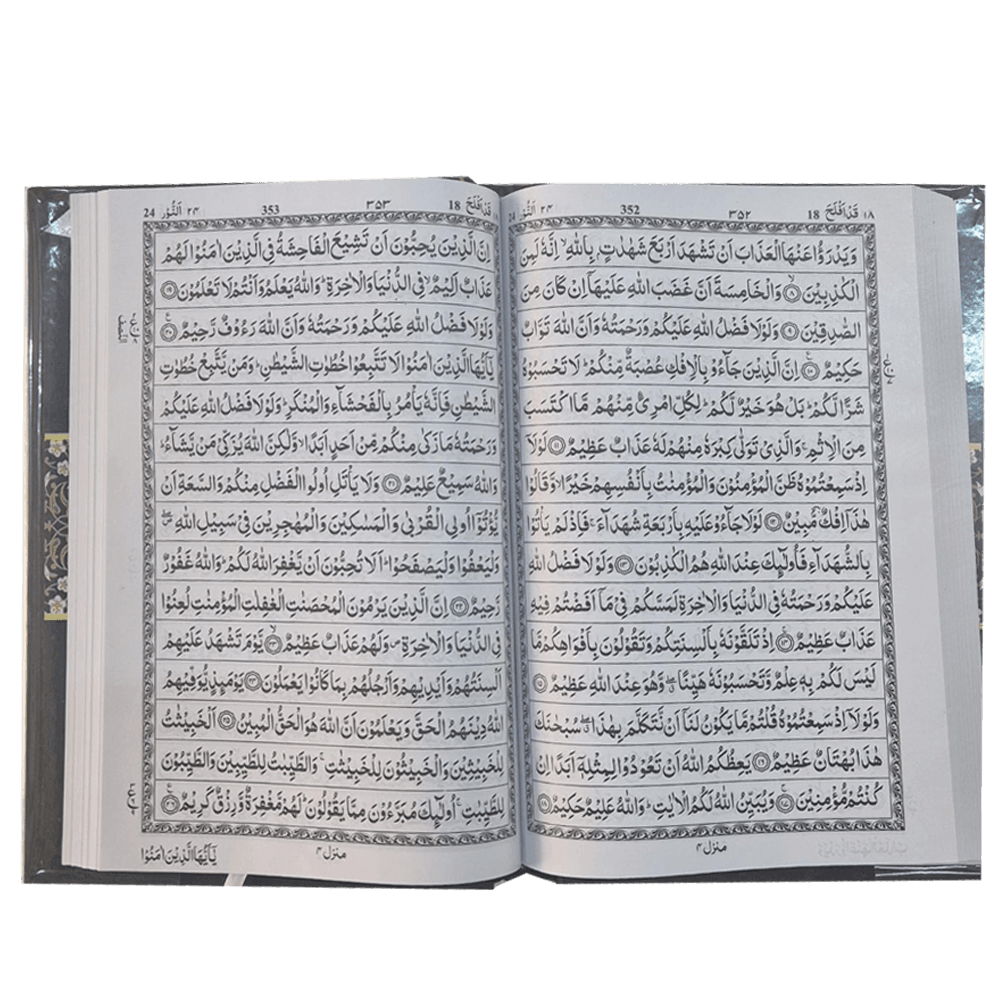 ١٨ قَدْ اَفْلَحَ 18 ٣٥٢ 352 ٢٤ اَلنُّوْر 24
وَيَدْرَؤُا عَنْهَا الْعَذَابَ اَنْ تَشْهَدَ اَرْبَعَ شَهٰدٰتٍۭ بِاللّٰهِ ۙ اِنَّهٗ لَمِنَ
الْكٰذِبِيْنَ ۙ﴿۸﴾ وَالْخَامِسَةَ اَنَّ غَضَبَ اللّٰهِ عَلَيْهَاۤ اِنْ كَانَ مِنَ
الصّٰدِقِيْنَ ﴿۹﴾ وَلَوْلَا فَضْلُ اللّٰهِ عَلَيْكُمْ وَرَحْمَتُهٗ وَاَنَّ اللّٰهَ تَوَّابٌ
حَكِيْمٌ ﴿۱۰﴾ اِنَّ الَّذِيْنَ جَآءُوْ بِالْاِفْكِ عُصْبَةٌ مِّنْكُمْ ؕ لَا تَحْسَبُوْهُ
شَرًّا لَّكُمْ ؕ بَلْ هُوَ خَيْرٌ لَّكُمْ ؕ لِكُلِّ امْرِئٍ مِّنْهُمْ مَّا اكْتَسَبَ
مِنَ الْاِثْمِ ۚ وَالَّذِيْ تَوَلّٰى كِبْرَهٗ مِنْهُمْ لَهٗ عَذَابٌ عَظِيْمٌ ﴿۱۱﴾ لَوْلَاۤ
اِذْ سَمِعْتُمُوْهُ ظَنَّ الْمُؤْمِنُوْنَ وَالْمُؤْمِنٰتُ بِاَنْفُسِهِمْ خَيْرًا ۙ وَّقَالُوْا
هٰذَاۤ اِفْكٌ مُّبِيْنٌ ﴿۱۲﴾ لَوْلَا جَآءُوْ عَلَيْهِ بِاَرْبَعَةِ شُهَدَآءَ ۚ فَاِذْ لَمْ يَاْتُوْا
بِالشُّهَدَآءِ فَاُولٰٓئِكَ عِنْدَ اللّٰهِ هُمُ الْكٰذِبُوْنَ ﴿۱۳﴾ وَلَوْلَا فَضْلُ اللّٰهِ
عَلَيْكُمْ وَرَحْمَتُهٗ فِي الدُّنْيَا وَالْاٰخِرَةِ لَمَسَّكُمْ فِيْ مَاۤ اَفَضْتُمْ فِيْهِ
عَذَابٌ عَظِيْمٌ ﴿۱۴﴾ اِذْ تَلَقَّوْنَهٗ بِاَلْسِنَتِكُمْ وَتَقُوْلُوْنَ بِاَفْوَاهِكُمْ مَّا
لَيْسَ لَكُمْ بِهٖ عِلْمٌ وَّتَحْسَبُوْنَهٗ هَيِّنًا ۖ وَّهُوَ عِنْدَ اللّٰهِ عَظِيْمٌ ﴿۱۵﴾
وَلَوْلَاۤ اِذْ سَمِعْتُمُوْهُ قُلْتُمْ مَّا يَكُوْنُ لَنَاۤ اَنْ نَّتَكَلَّمَ بِهٰذَا ۖ سُبْحٰنَكَ
هٰذَا بُهْتَانٌ عَظِيْمٌ ﴿۱۶﴾ يَعِظُكُمُ اللّٰهُ اَنْ تَعُوْدُوْا لِمِثْلِهٖۤ اَبَدًا اِنْ
كُنْتُمْ مُّؤْمِنِيْنَ ﴿۱۷﴾ وَيُبَيِّنُ اللّٰهُ لَكُمُ الْاٰيٰتِ ؕ وَاللّٰهُ عَلِيْمٌ حَكِيْمٌ ﴿۱۸﴾
منزل ۴
قَدْ اَفْلَحَ 18 ٣٥٣ 353 ٢٤ اَلنُّوْر 24
اِنَّ الَّذِيْنَ يُحِبُّوْنَ اَنْ تَشِيْعَ الْفَاحِشَةُ فِي الَّذِيْنَ اٰمَنُوْا لَهُمْ
عَذَابٌ اَلِيْمٌ ۙ فِي الدُّنْيَا وَالْاٰخِرَةِ ؕ وَاللّٰهُ يَعْلَمُ وَاَنْتُمْ لَا تَعْلَمُوْنَ ﴿۱۹﴾
وَلَوْلَا فَضْلُ اللّٰهِ عَلَيْكُمْ وَرَحْمَتُهٗ وَاَنَّ اللّٰهَ رَءُوْفٌ رَّحِيْمٌ ﴿۲۰﴾
يٰۤاَيُّهَا الَّذِيْنَ اٰمَنُوْا لَا تَتَّبِعُوْا خُطُوٰتِ الشَّيْطٰنِ ؕ وَمَنْ يَّتَّبِعْ خُطُوٰتِ
الشَّيْطٰنِ فَاِنَّهٗ يَاْمُرُ بِالْفَحْشَآءِ وَالْمُنْكَرِ ؕ وَلَوْلَا فَضْلُ اللّٰهِ عَلَيْكُمْ
وَرَحْمَتُهٗ مَا زَكٰى مِنْكُمْ مِّنْ اَحَدٍ اَبَدًا ۙ وَّلٰكِنَّ اللّٰهَ يُزَكِّيْ مَنْ يَّشَآءُ ؕ
وَاللّٰهُ سَمِيْعٌ عَلِيْمٌ ﴿۲۱﴾ وَلَا يَاْتَلِ اُولُوا الْفَضْلِ مِنْكُمْ وَالسَّعَةِ اَنْ
يُّؤْتُوْۤا اُولِي الْقُرْبٰى وَالْمَسٰكِيْنَ وَالْمُهٰجِرِيْنَ فِيْ سَبِيْلِ اللّٰهِ ۖ
وَلْيَعْفُوْا وَلْيَصْفَحُوْا ؕ اَلَا تُحِبُّوْنَ اَنْ يَّغْفِرَ اللّٰهُ لَكُمْ ؕ وَاللّٰهُ غَفُوْرٌ
رَّحِيْمٌ ﴿۲۲﴾ اِنَّ الَّذِيْنَ يَرْمُوْنَ الْمُحْصَنٰتِ الْغٰفِلٰتِ الْمُؤْمِنٰتِ لُعِنُوْا
فِي الدُّنْيَا وَالْاٰخِرَةِ ۪ وَلَهُمْ عَذَابٌ عَظِيْمٌ ﴿۲۳﴾ يَّوْمَ تَشْهَدُ عَلَيْهِمْ
اَلْسِنَتُهُمْ وَاَيْدِيْهِمْ وَاَرْجُلُهُمْ بِمَا كَانُوْا يَعْمَلُوْنَ ﴿۲۴﴾ يَوْمَئِذٍ يُّوَفِّيْهِمُ
اللّٰهُ دِيْنَهُمُ الْحَقَّ وَيَعْلَمُوْنَ اَنَّ اللّٰهَ هُوَ الْحَقُّ الْمُبِيْنُ ﴿۲۵﴾ اَلْخَبِيْثٰتُ
لِلْخَبِيْثِيْنَ وَالْخَبِيْثُوْنَ لِلْخَبِيْثٰتِ ۚ وَالطَّيِّبٰتُ لِلطَّيِّبِيْنَ وَالطَّيِّبُوْنَ
لِلطَّيِّبٰتِ ۚ اُولٰٓئِكَ مُبَرَّءُوْنَ مِمَّا يَقُوْلُوْنَ ؕ لَهُمْ مَّغْفِرَةٌ وَّرِزْقٌ كَرِيْمٌ ﴿۲۶﴾
منزل ۴
يٰۤاَيُّهَا الَّذِيْنَ اٰمَنُوْا